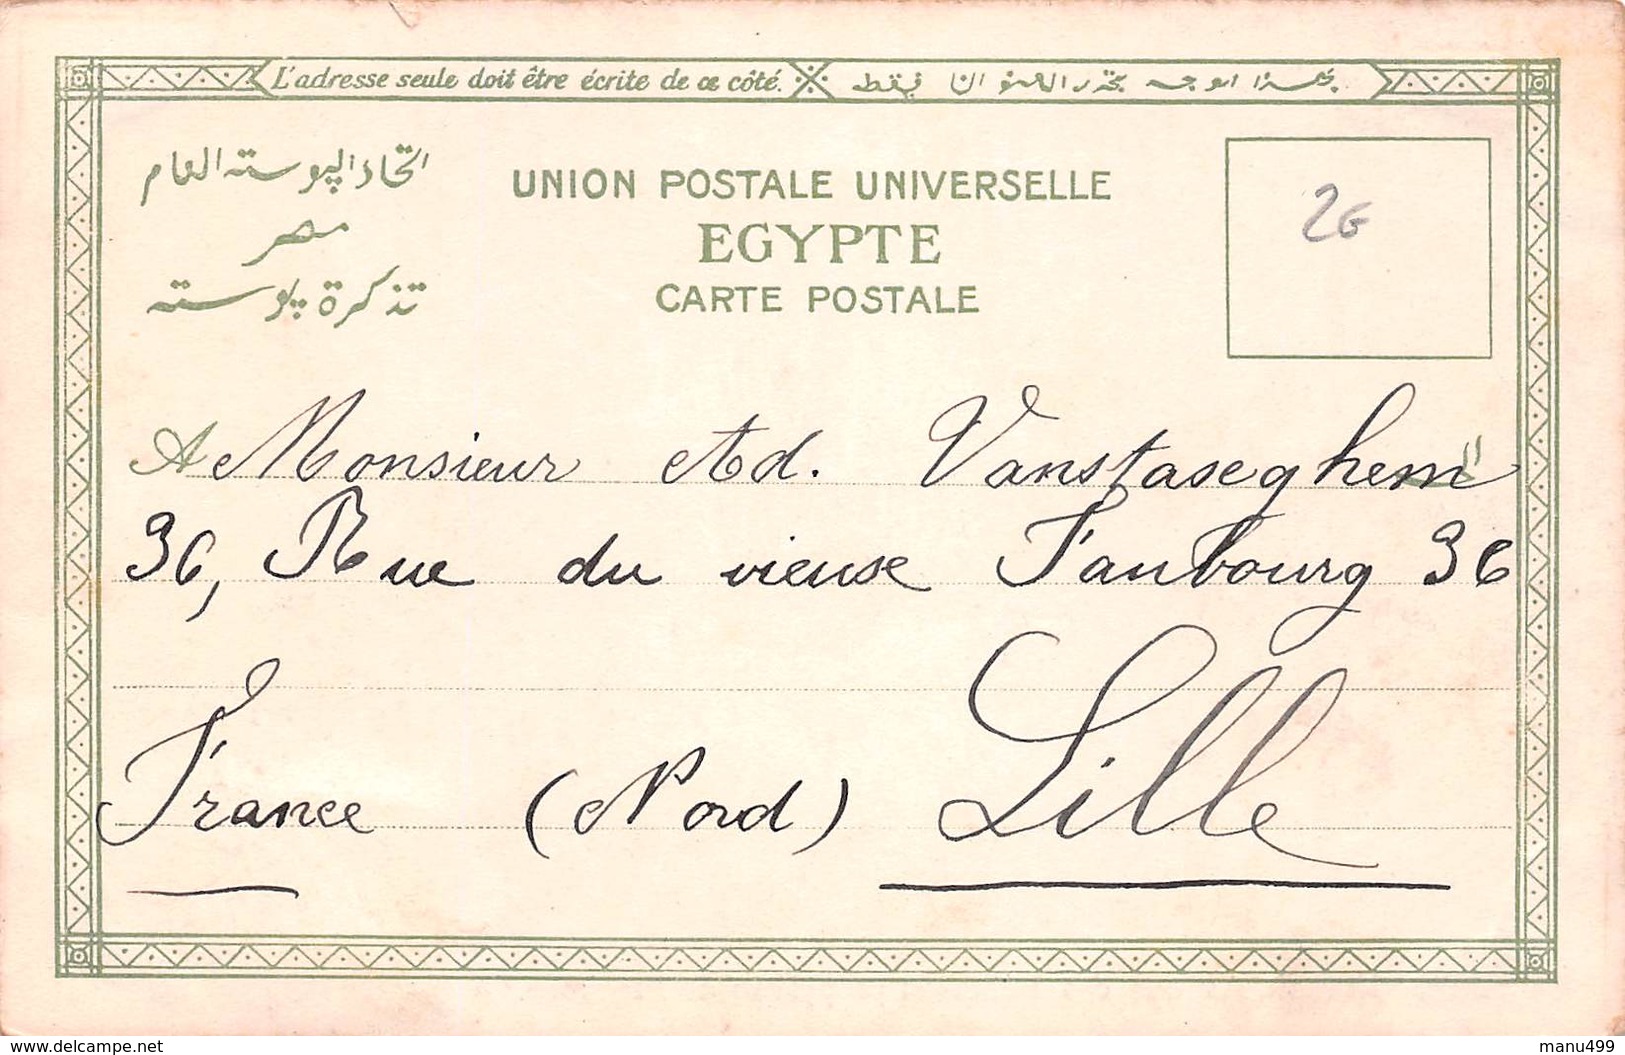 L'adresse seule doit être écrite de ce côté.
اتحاد البوسته العام
مصر
تذكرة بوسته
UNION POSTALE UNIVERSELLE
EGYPTE
CARTE POSTALE
2G
A Monsieur Ad. Vanstaseghem
36, Rue du vieuse Faubourg 36
France (Nord) Lille
www.delcampe.net
manu499